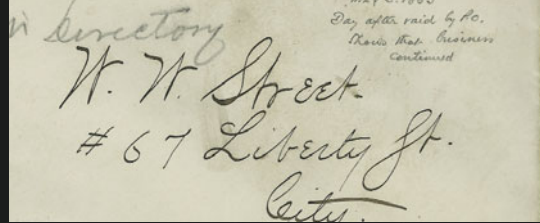 Directory
Day after raid by P.O.
Shows that business
continued
W. W. Street
# 67 Liberty St.
City.